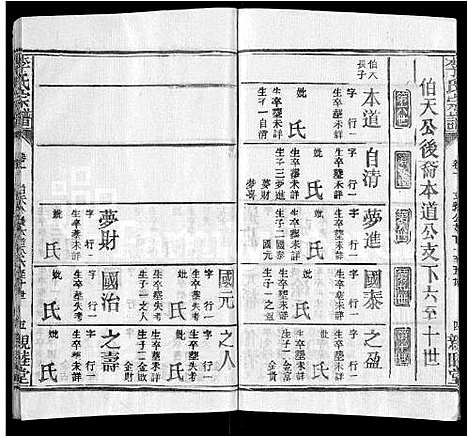 李氏宗譜
伯天公後裔本道公支下六至十世
伯天長子
本道
字 行一
生卒塟未詳
妣 氏
生卒塟未詳
生子一自清
自清
字 行一
生卒塟未詳
妣 氏
生卒塟未詳
生子三夢進
夢財
夢喜
夢進
字 行一
生卒塟未詳
妣 氏
生卒塟未詳
生子二國泰
國元
國泰
字 行一
生卒塟未詳
妣 氏
生卒塟未詳
生子一之盈
之盈
字 行一
生卒塟未詳
妣 氏
生卒塟未詳
生子二金
金貴
親睦堂
國元
字 行二
生卒塟失考
妣 氏
生卒塟失考
生子一之人
之人
字 行一
生卒塟失考
妣 氏
生卒塟未詳
生子一金敗
夢財
字 行二
生卒塟未詳
妣 氏
國治
字 行一
生卒塟未詳
妣 氏
生卒塟未詳
生子一之壽
之壽
字 行一
生卒塟未詳
妣 氏
生卒塟未詳
生子二金
金財
李氏宗譜
親睦堂